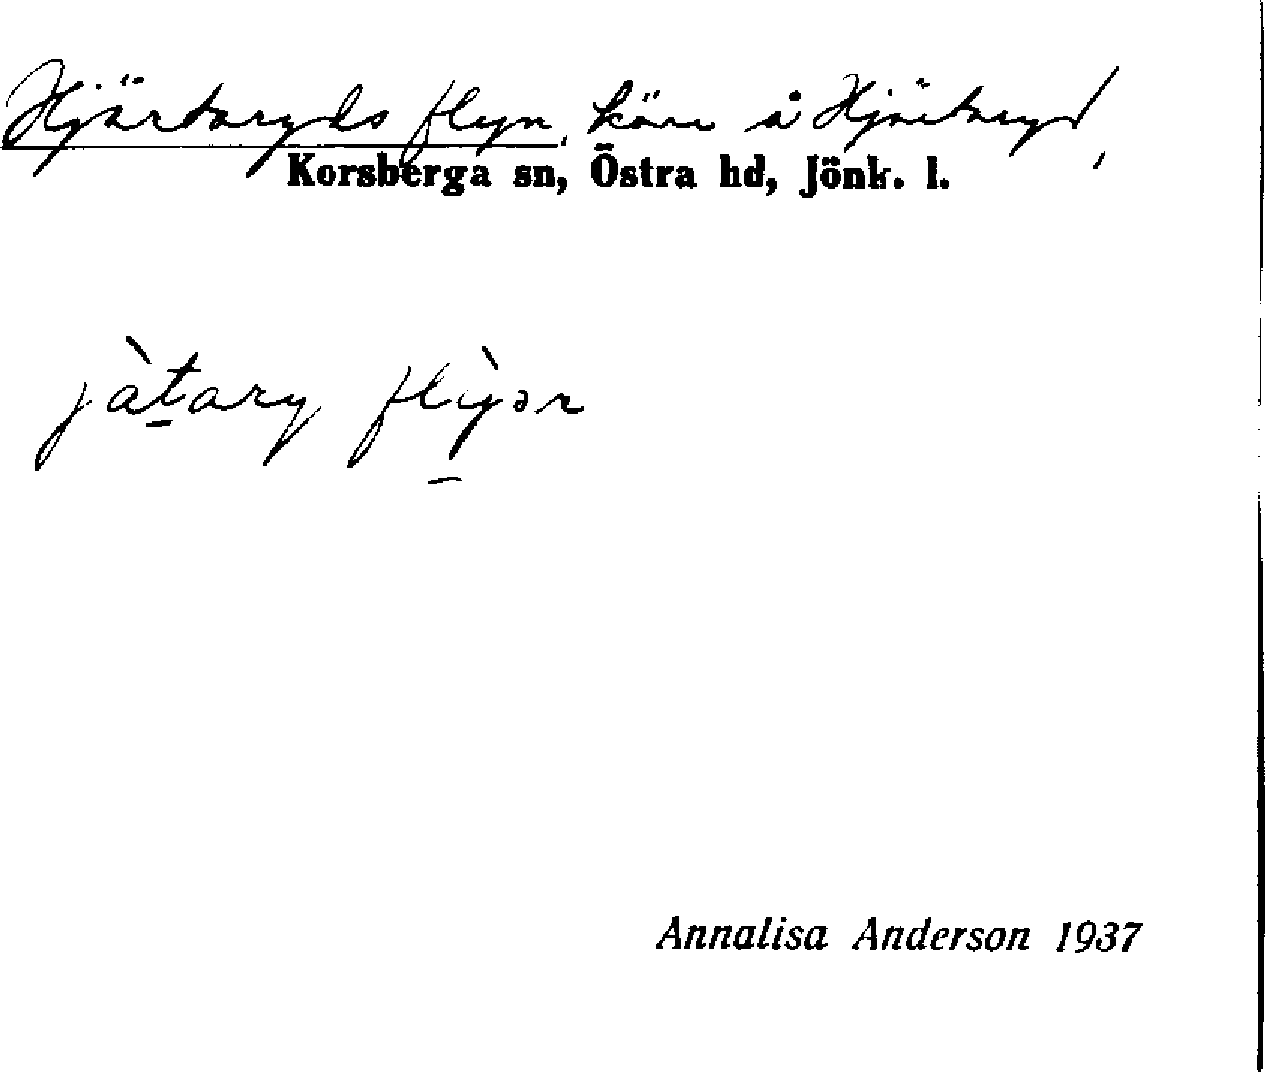 Hjärtaryds flyn, kärr å Hjärtaryd,
Korsberga sn, Östra hd, Jönk. l.
jàtary flỳər
Annalisa Anderson 1937